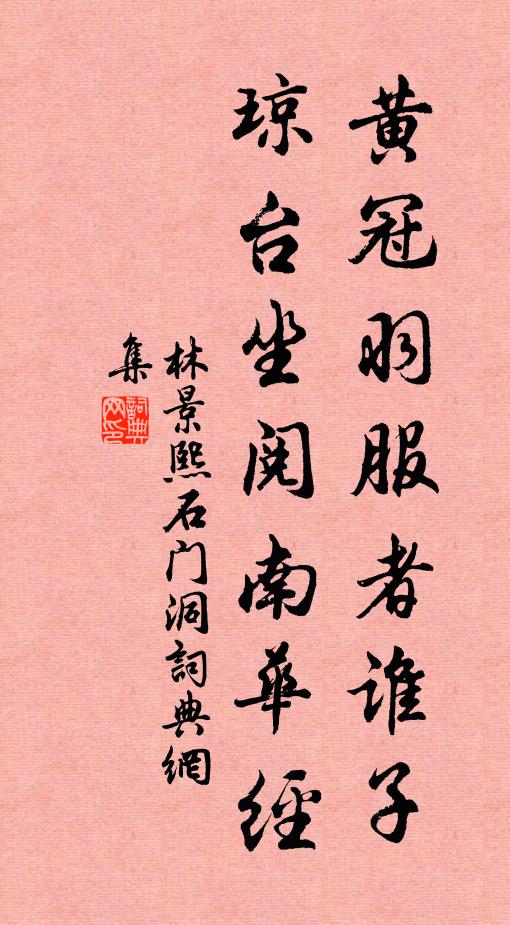 黄冠羽服者谁子
琼台坐阅南华经
林景熙石门洞詞典網
集
詞典网印